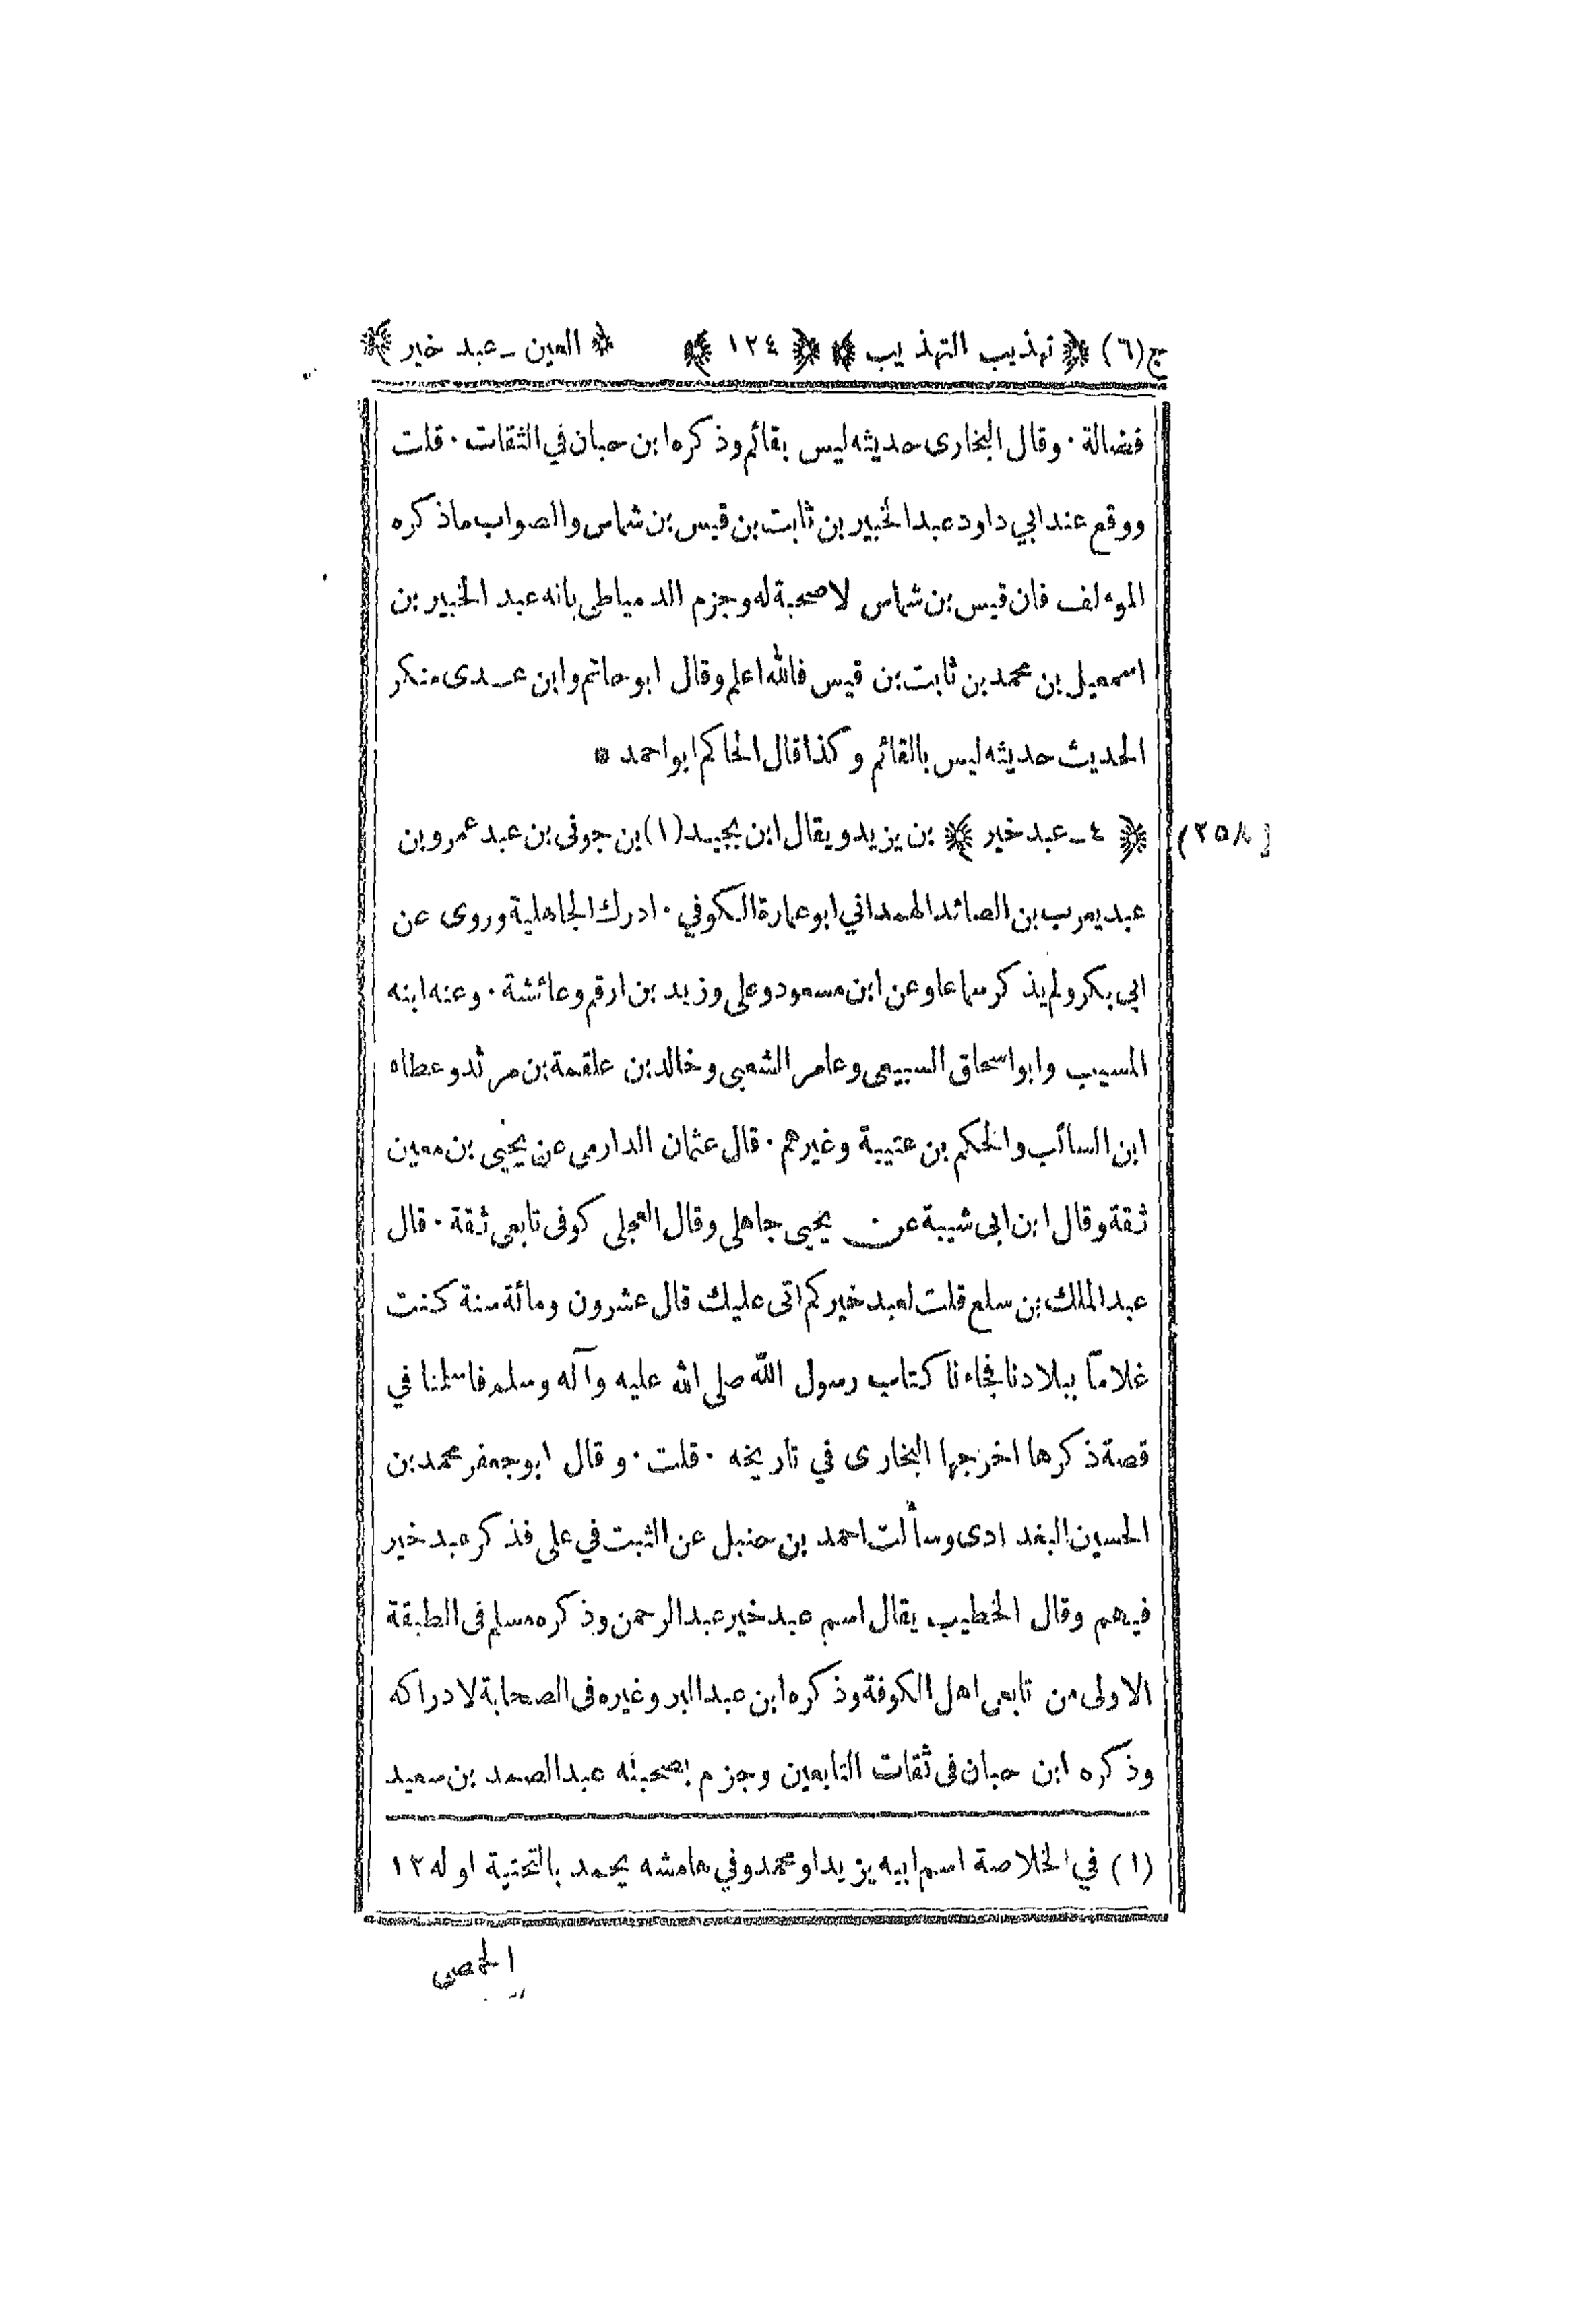 ج(٦) ﴿ تهذيب التهذيب ﴾ ﴿ ١٢٤ ﴾ ﴿ العين ـ عبد خير ﴾
فضالة · وقال البخارى حديثه ليس بقائم وذكره ابن حبان في الثقات · قلت
ووقع عند ابي داود عبد الخبير بن ثابت بن قيس بن شماس والصواب ما ذكره
الموءلف فان قيس بن شماس لا صحبة له وجزم الدمياطي بانه عبد الخبير بن
اسمعيل بن محمد بن ثابت بن قيس فالله اعلم وقال ابو حاتم وابن عدى منكر
الحديث حديثه ليس بالقائم وكذا قال الحاكم ابو احمد *
[٢٥٨) ﴿ ٤ ـ عبد خير ﴾ بن يزيد ويقال ابن بجيد (١) بن جوفى بن عبد عمرو بن
عبد يعرب بن الصائد الهمداني ابو عمارة الكوفي · ادرك الجاهلية وروى عن
ابي بكر ولم يذكر سماعا وعن ابن مسعود وعلى وزيد بن ارقم وعائشة · وعنه ابنه
المسيب وابو اسحاق السبيعى وعامر الشعبى وخالد بن علقمة بن مرثد وعطاء
ابن السائب والحكم بن عتيبة وغيرهم · قال عثمان الدارمى عن يحيى بن معين
ثقة وقال ابن ابى شيبة عن يحيى جاهلى وقال العجلى كوفى تابعى ثقة · قال
عبد الملك بن سلع قلت لعبد خير كم اتى عليك قال عشرون ومائة سنة كنت
غلاما ببلادنا فجاءنا كتاب رسول الله صلى الله عليه وآله وسلم فاسلمنا في
قصة ذكرها اخرجها البخارى في تاريخه · قلت · وقال ابو جعفر محمد بن
الحسين البغدادى وسألت احمد بن حنبل عن الثبت في على فذكر عبد خير
فيهم وقال الخطيب يقال اسم عبد خير عبد الرحمن وذكره مسلم فى الطبقة
الاولى من تابعى اهل الكوفة وذكره ابن عبد البر وغيره فى الصحابة لادراكه
وذكره ابن حبان فى ثقات التابعين وجزم بصحبته عبد الصمد بن سعيد
(١) في الخلاصة اسم ابيه يزيد او محمد وفي هامشه يحمد بالتحتية اوله ١٢
الحمصى